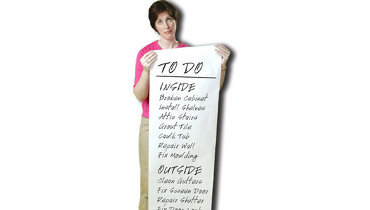 TO DO
INSIDE
Broken Cabinet
Install Shelves
Attic Stairs
Grout Tile
Caulk Tub
Repair Wall
Fix Moulding
OUTSIDE
Clean Gutters
Fix Screen Door
Repair Shutter